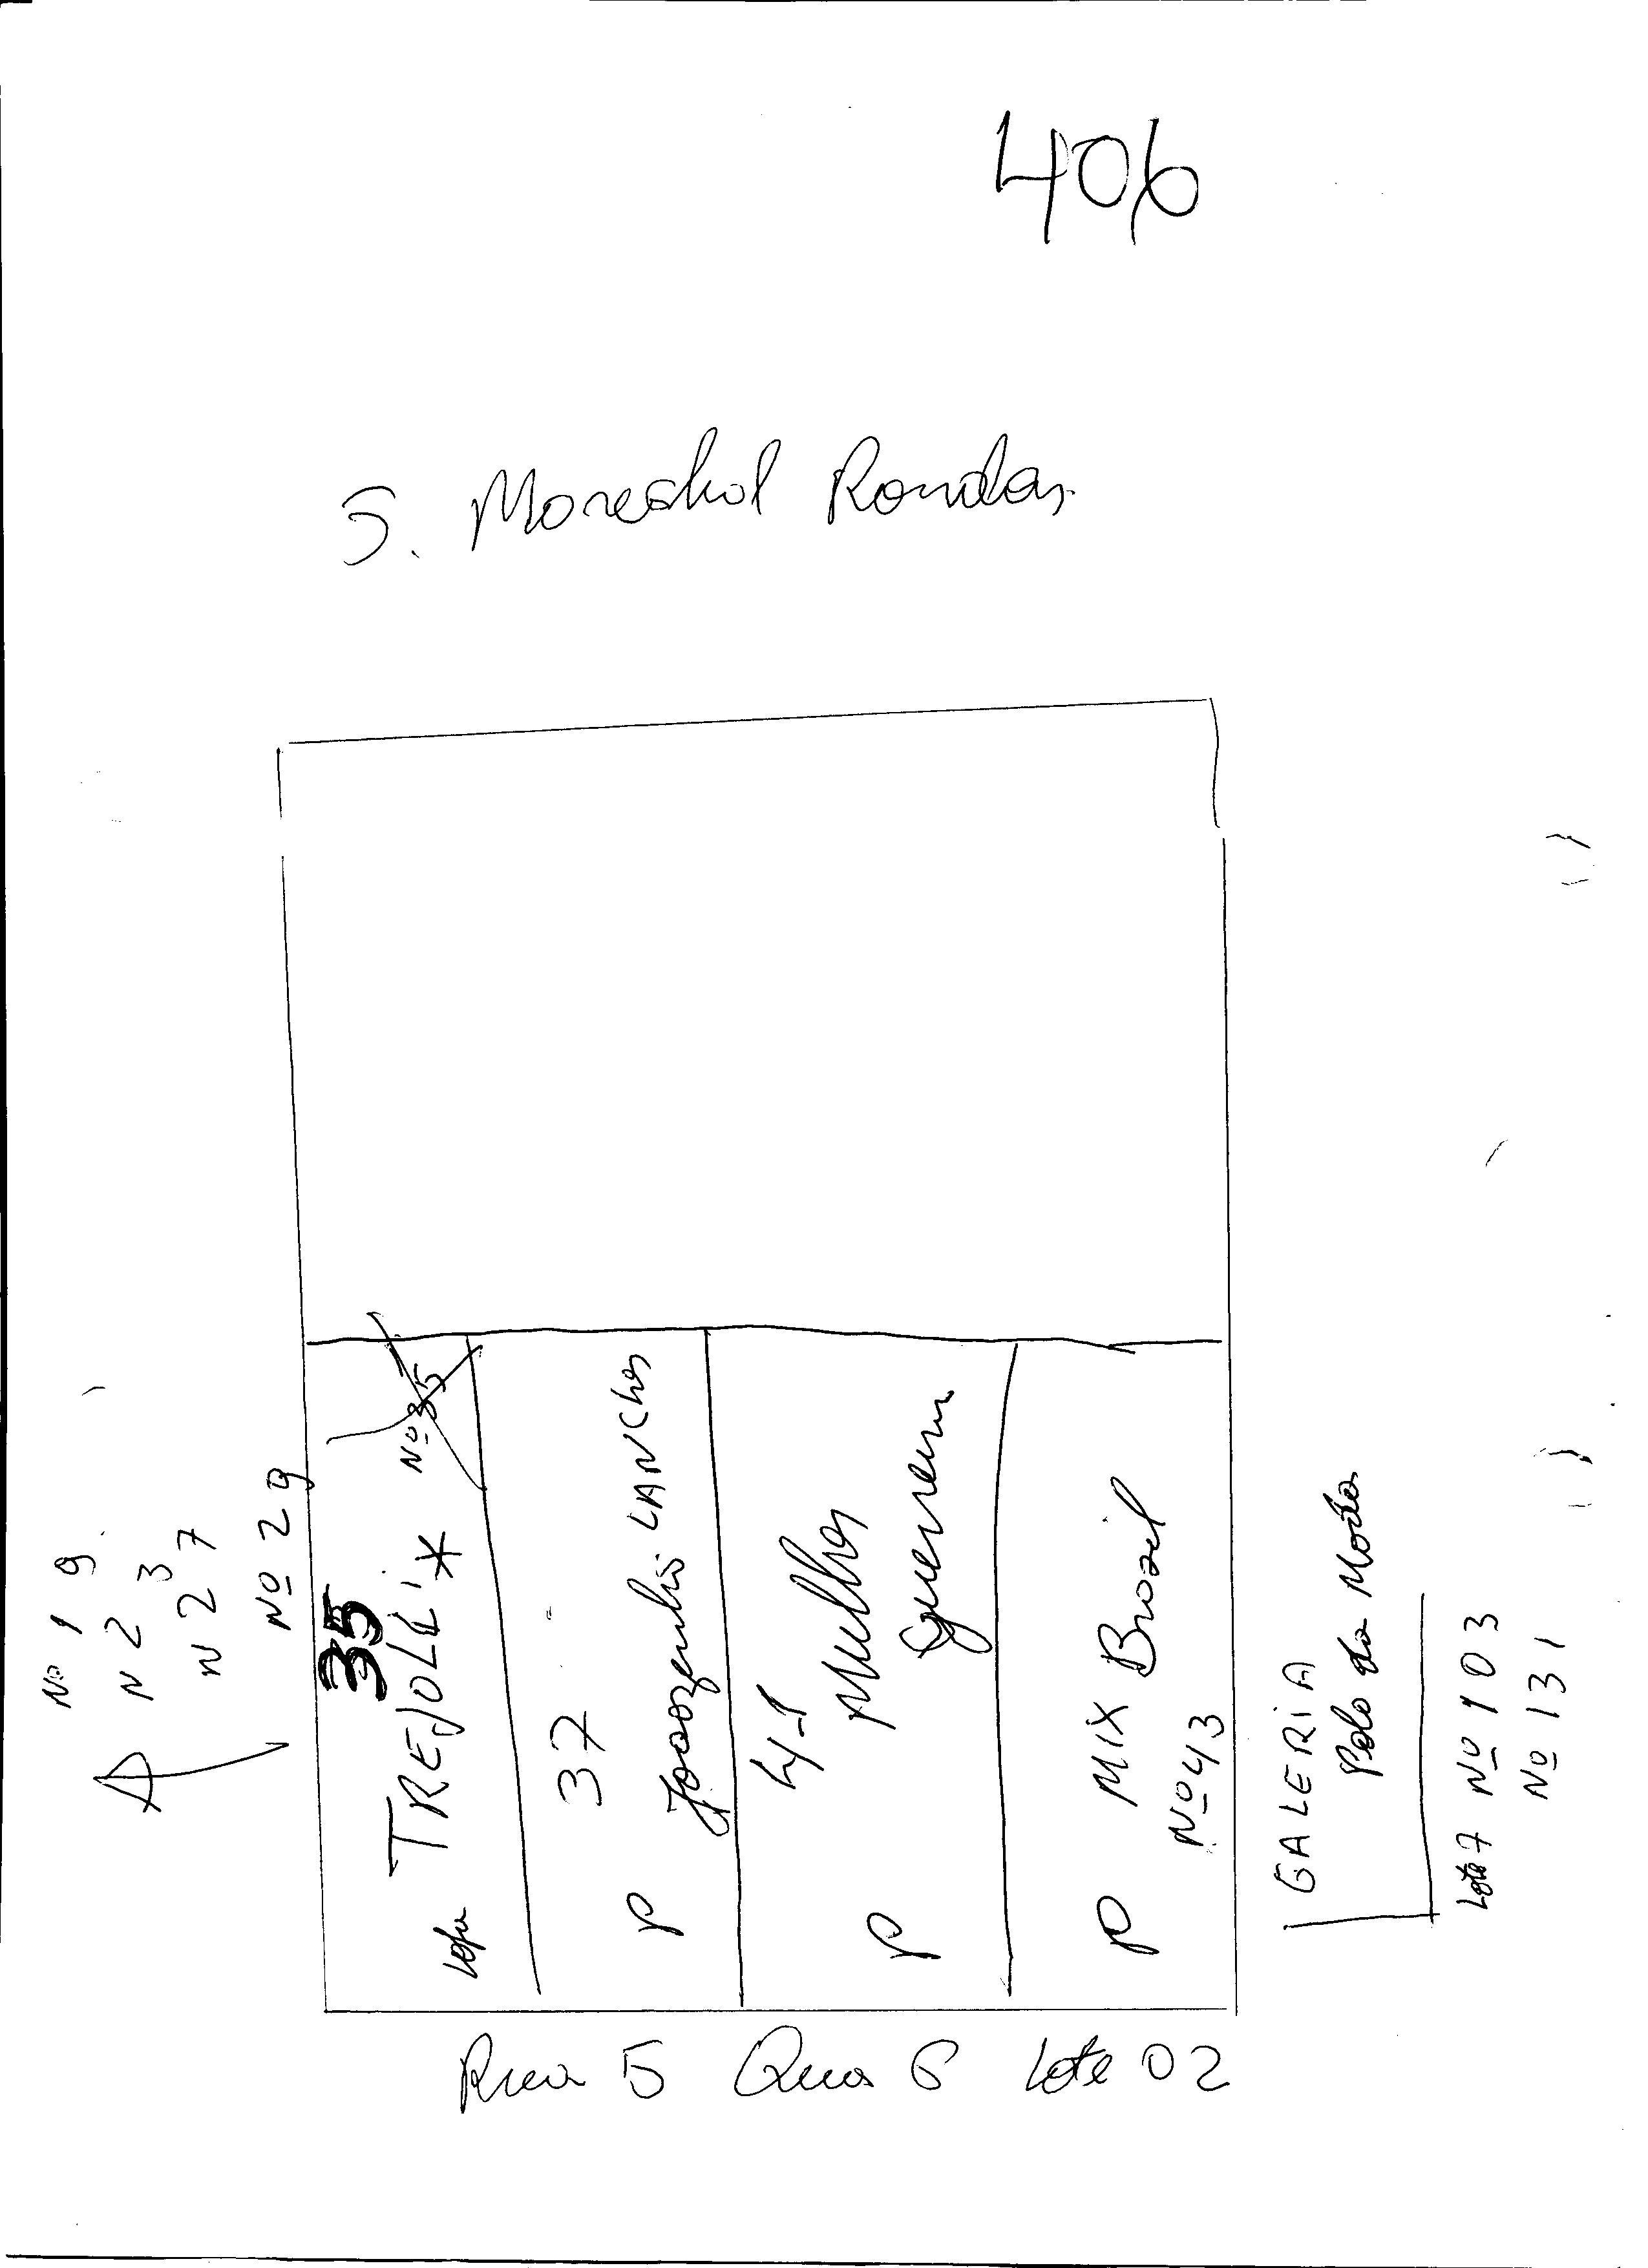 406
S. Marechal Rondon
Nº 19
N 23
N 27
Nº 29
35
Loja TREJOLI' * Nº 35
37
P LANCHES
41
P Mulher
Guerreira
P MIX Brasil
Nº 43
GALERIA
Polo da Moda
Lote 7 Nº 103
Nº 131
Rua 5 Qua 6 Lote 02